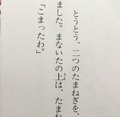 とうとう、二つのたまねぎを、
ました。まないたの上は、たまね
「こまったわ。」